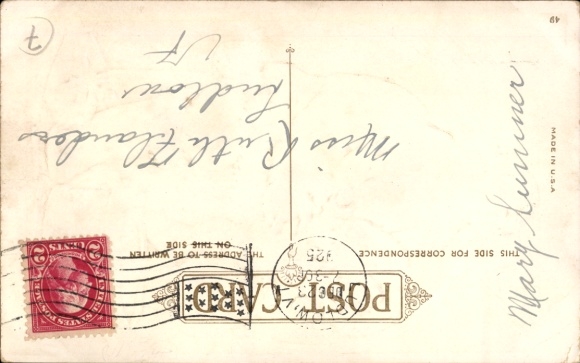 POST CARD
THIS SIDE FOR CORRESPONDENCE
THE ADDRESS TO BE WRITTEN
ON THIS SIDE
DEC 23
7-30 P
1925
2 CENTS 2
Miss Ruth Flanders
Ludlow
VT
Mary Sumner
MADE IN U.S.A.
49
7